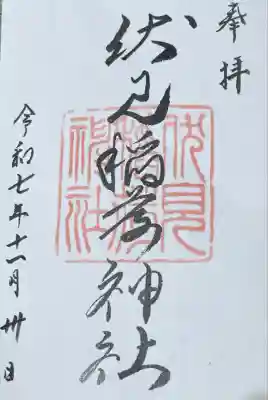 奉拝
伏見稲荷神社
令和七年十一月卅日
伏見
稲荷
神社